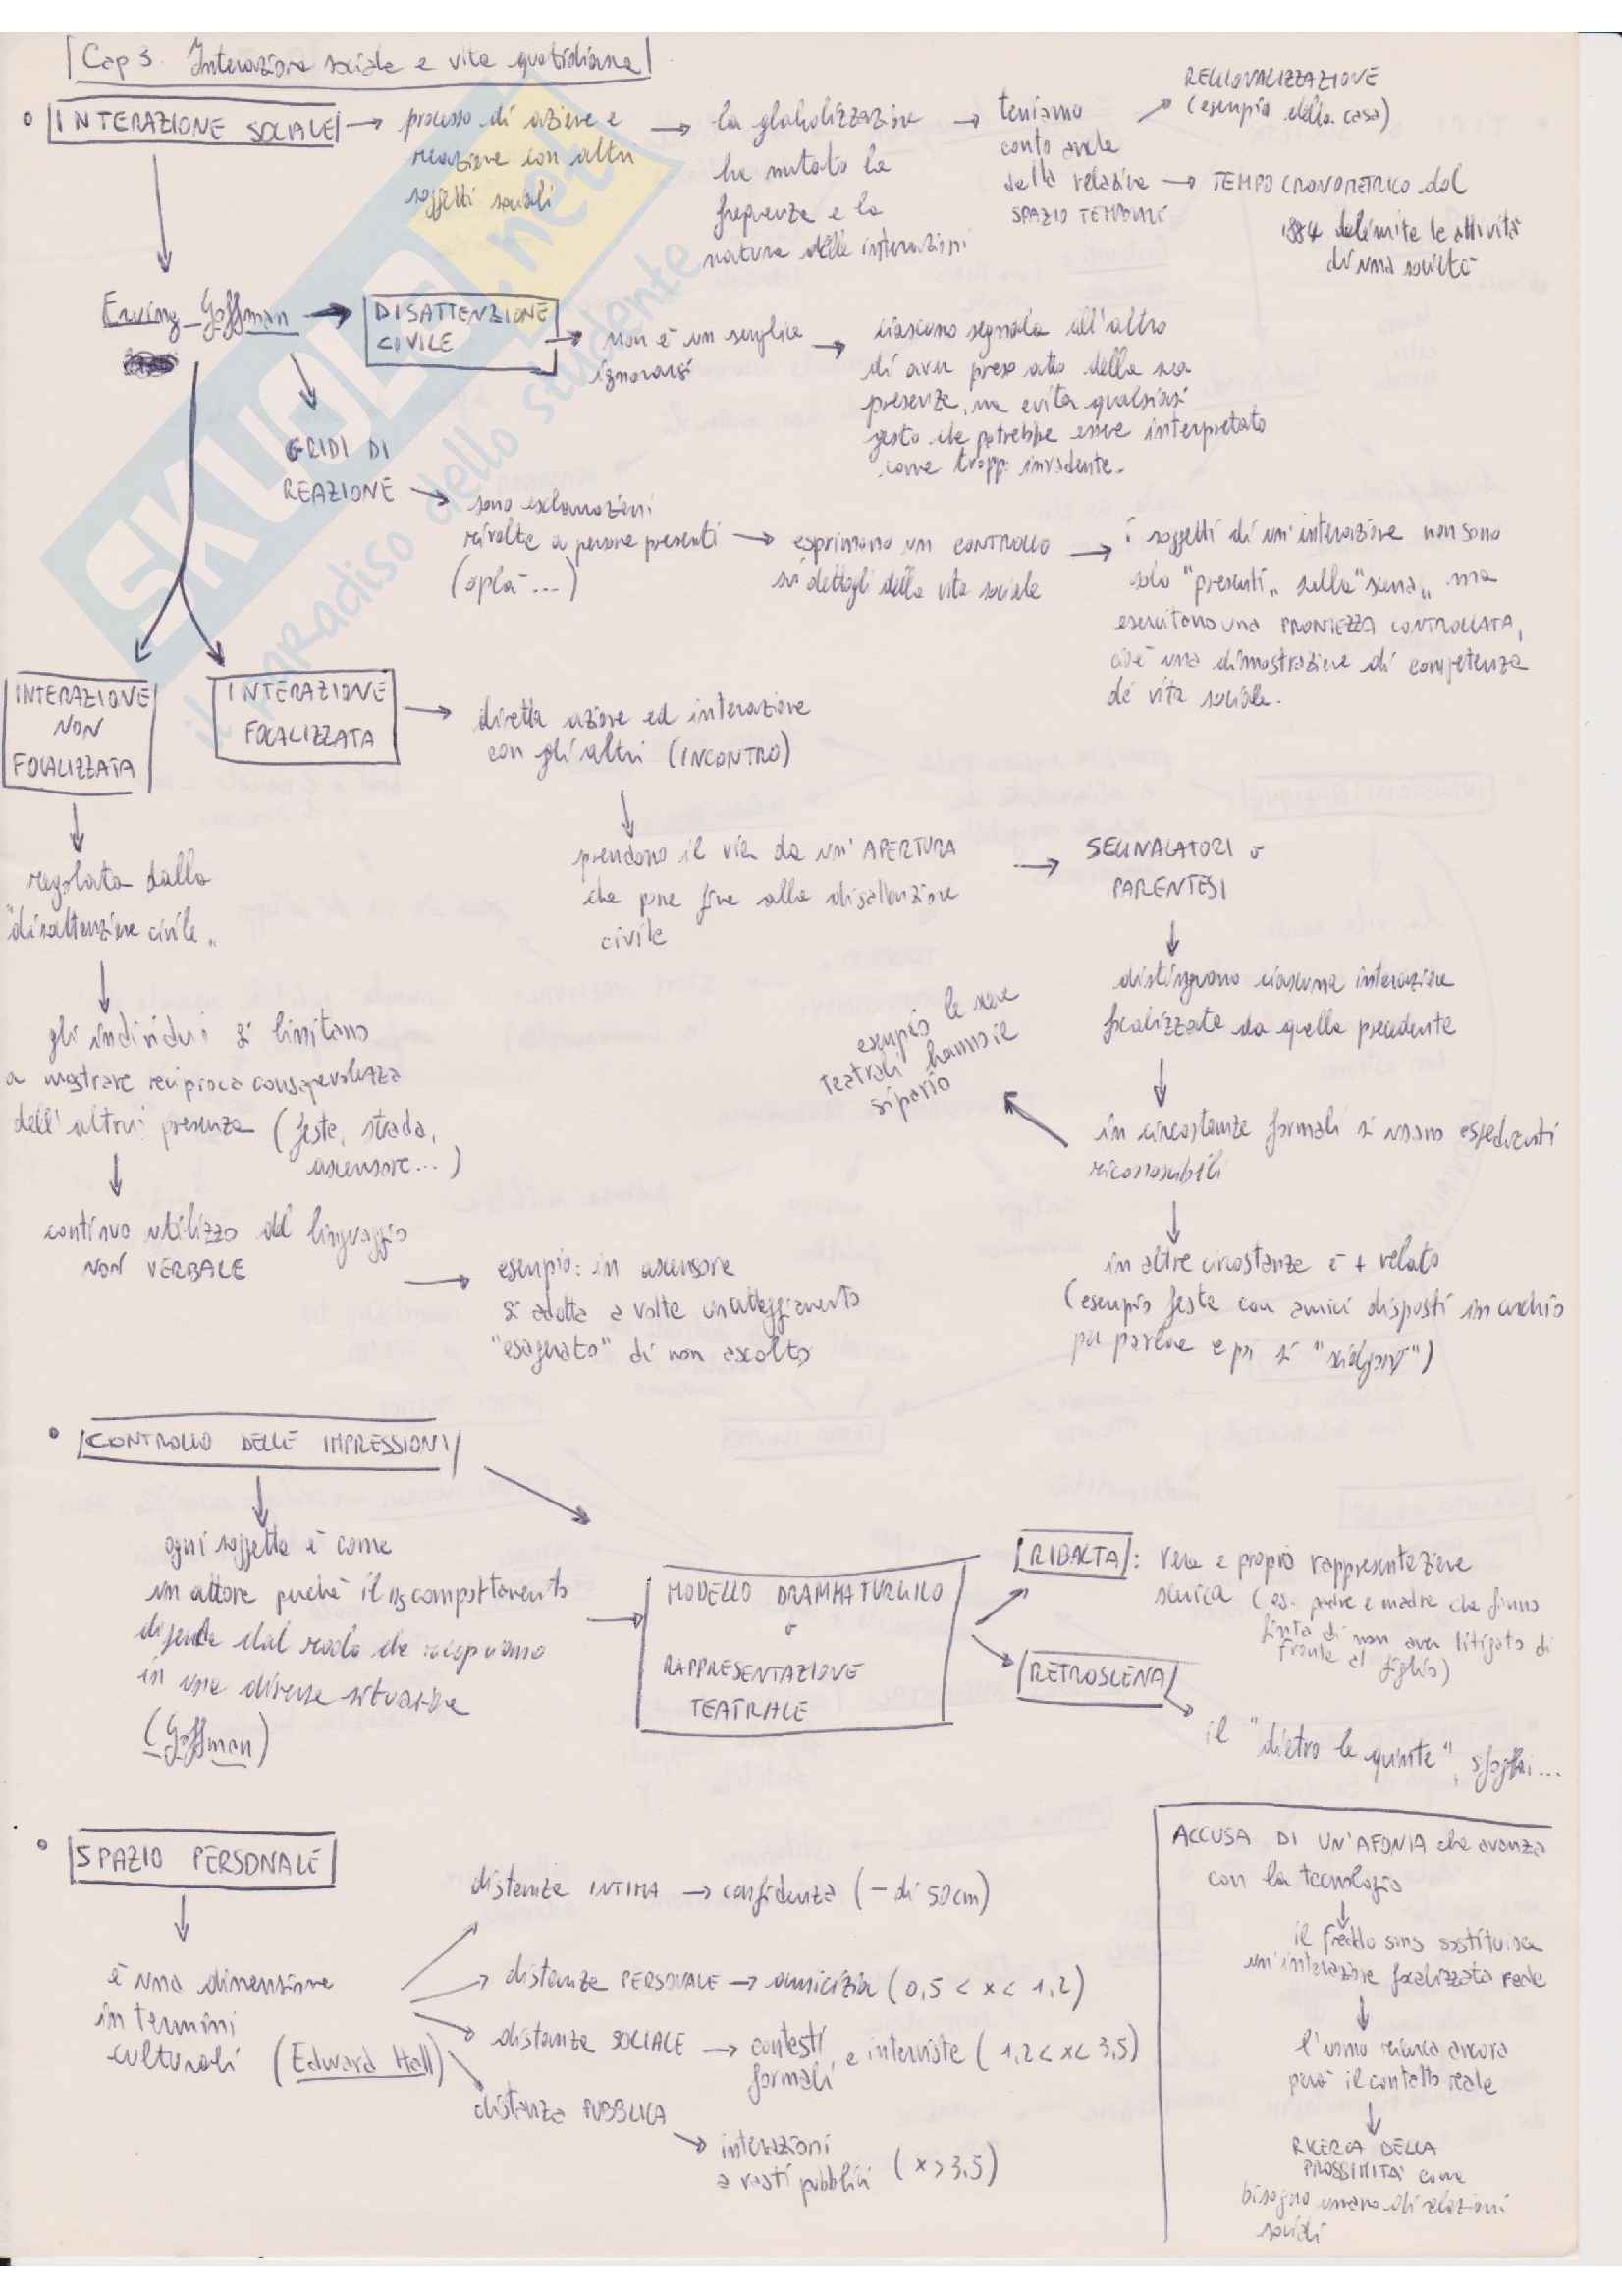 Cap 3. Interazione sociale e vita quotidiana
INTERAZIONE SOCIALE
processo di azione e
reazione con altri
soggetti sociali
la globalizzazione
ha mutato la
frequenza e la
natura delle interazioni
teniamo
conto anche
della relazione
SPAZIO TEMPORALE
REGIONALIZZAZIONE
(esempio della casa)
TEMPO CRONOMETRICO dal
1884 delimita le attività
di una società
Erving Goffman
DISATTENZIONE
CIVILE
non è un semplice
ignorarsi
ciascuno segnala all'altro
di aver preso atto della sua
presenza, ma evita qualsiasi
gesto che potrebbe essere interpretato
come troppo invadente.
GRIDI DI
REAZIONE
sono esclamazioni
rivolte a persone presenti
(oplà ...)
esprimono un CONTROLLO
sui dettagli della vita sociale
i soggetti di un'interazione non sono
solo "presenti" sulla "scena" ma
esercitano una PRONTEZZA CONTROLLATA,
cioè una dimostrazione di competenza
di vita sociale.
INTERAZIONE
NON
FOCALIZZATA
INTERAZIONE
FOCALIZZATA
diretta azione ed interazione
con gli altri (INCONTRO)
prendono il via da un'APERTURA
che pone fine alla disattenzione
civile
SEGNALATORI o
PARENTESI
distinguono ciascuna interazione
focalizzata da quella precedente
in circostanze formali si usano espedienti
riconoscibili
esempio le scene
teatrali hanno il
sipario
in altre circostanze è + velato
(esempio feste con amici disposti in cerchio
per parlare e poi si "sciolgono")
regolata dalla
"disattenzione civile"
gli individui si limitano
a mostrare reciproca consapevolezza
dell'altrui presenza (feste, strada,
ascensore ...)
continuo utilizzo del linguaggio
NON VERBALE
esempio: in ascensore
si adotta a volte un atteggiamento
"esagerato" di non ascolto
CONTROLLO DELLE IMPRESSIONI
ogni soggetto è come
un attore perché il comportamento
dipende dal ruolo che ricopriamo
in una diversa situazione
(Goffman)
MODELLO DRAMMATURGICO
o
RAPPRESENTAZIONE
TEATRALE
RIBALTA: vera e propria rappresentazione
scenica (es. padre e madre che fanno
finta di non aver litigato di
fronte al figlio)
RETROSCENA
il "dietro le quinte", sfoghi...
SPAZIO PERSONALE
è una dimensione
in termini
culturali (Edward Hall)
distanza INTIMA → confidenza (- di 50cm)
distanza PERSONALE → amicizia (0,5 < x < 1,2)
distanza SOCIALE → contesti formali e interviste (1,2 < x < 3,5)
distanza PUBBLICA
interazioni
a vasti pubblici (x > 3,5)
ACCUSA DI UN'AFONIA che avanza
con la tecnologia
il freddo sms sostituisce
un'interazione focalizzata reale
l'uomo ricerca ancora
però il contatto reale
RICERCA DELLA
PROSSIMITA' come
bisogno umano di relazioni
sociali
SKUOLA.net
il paradiso dello studente